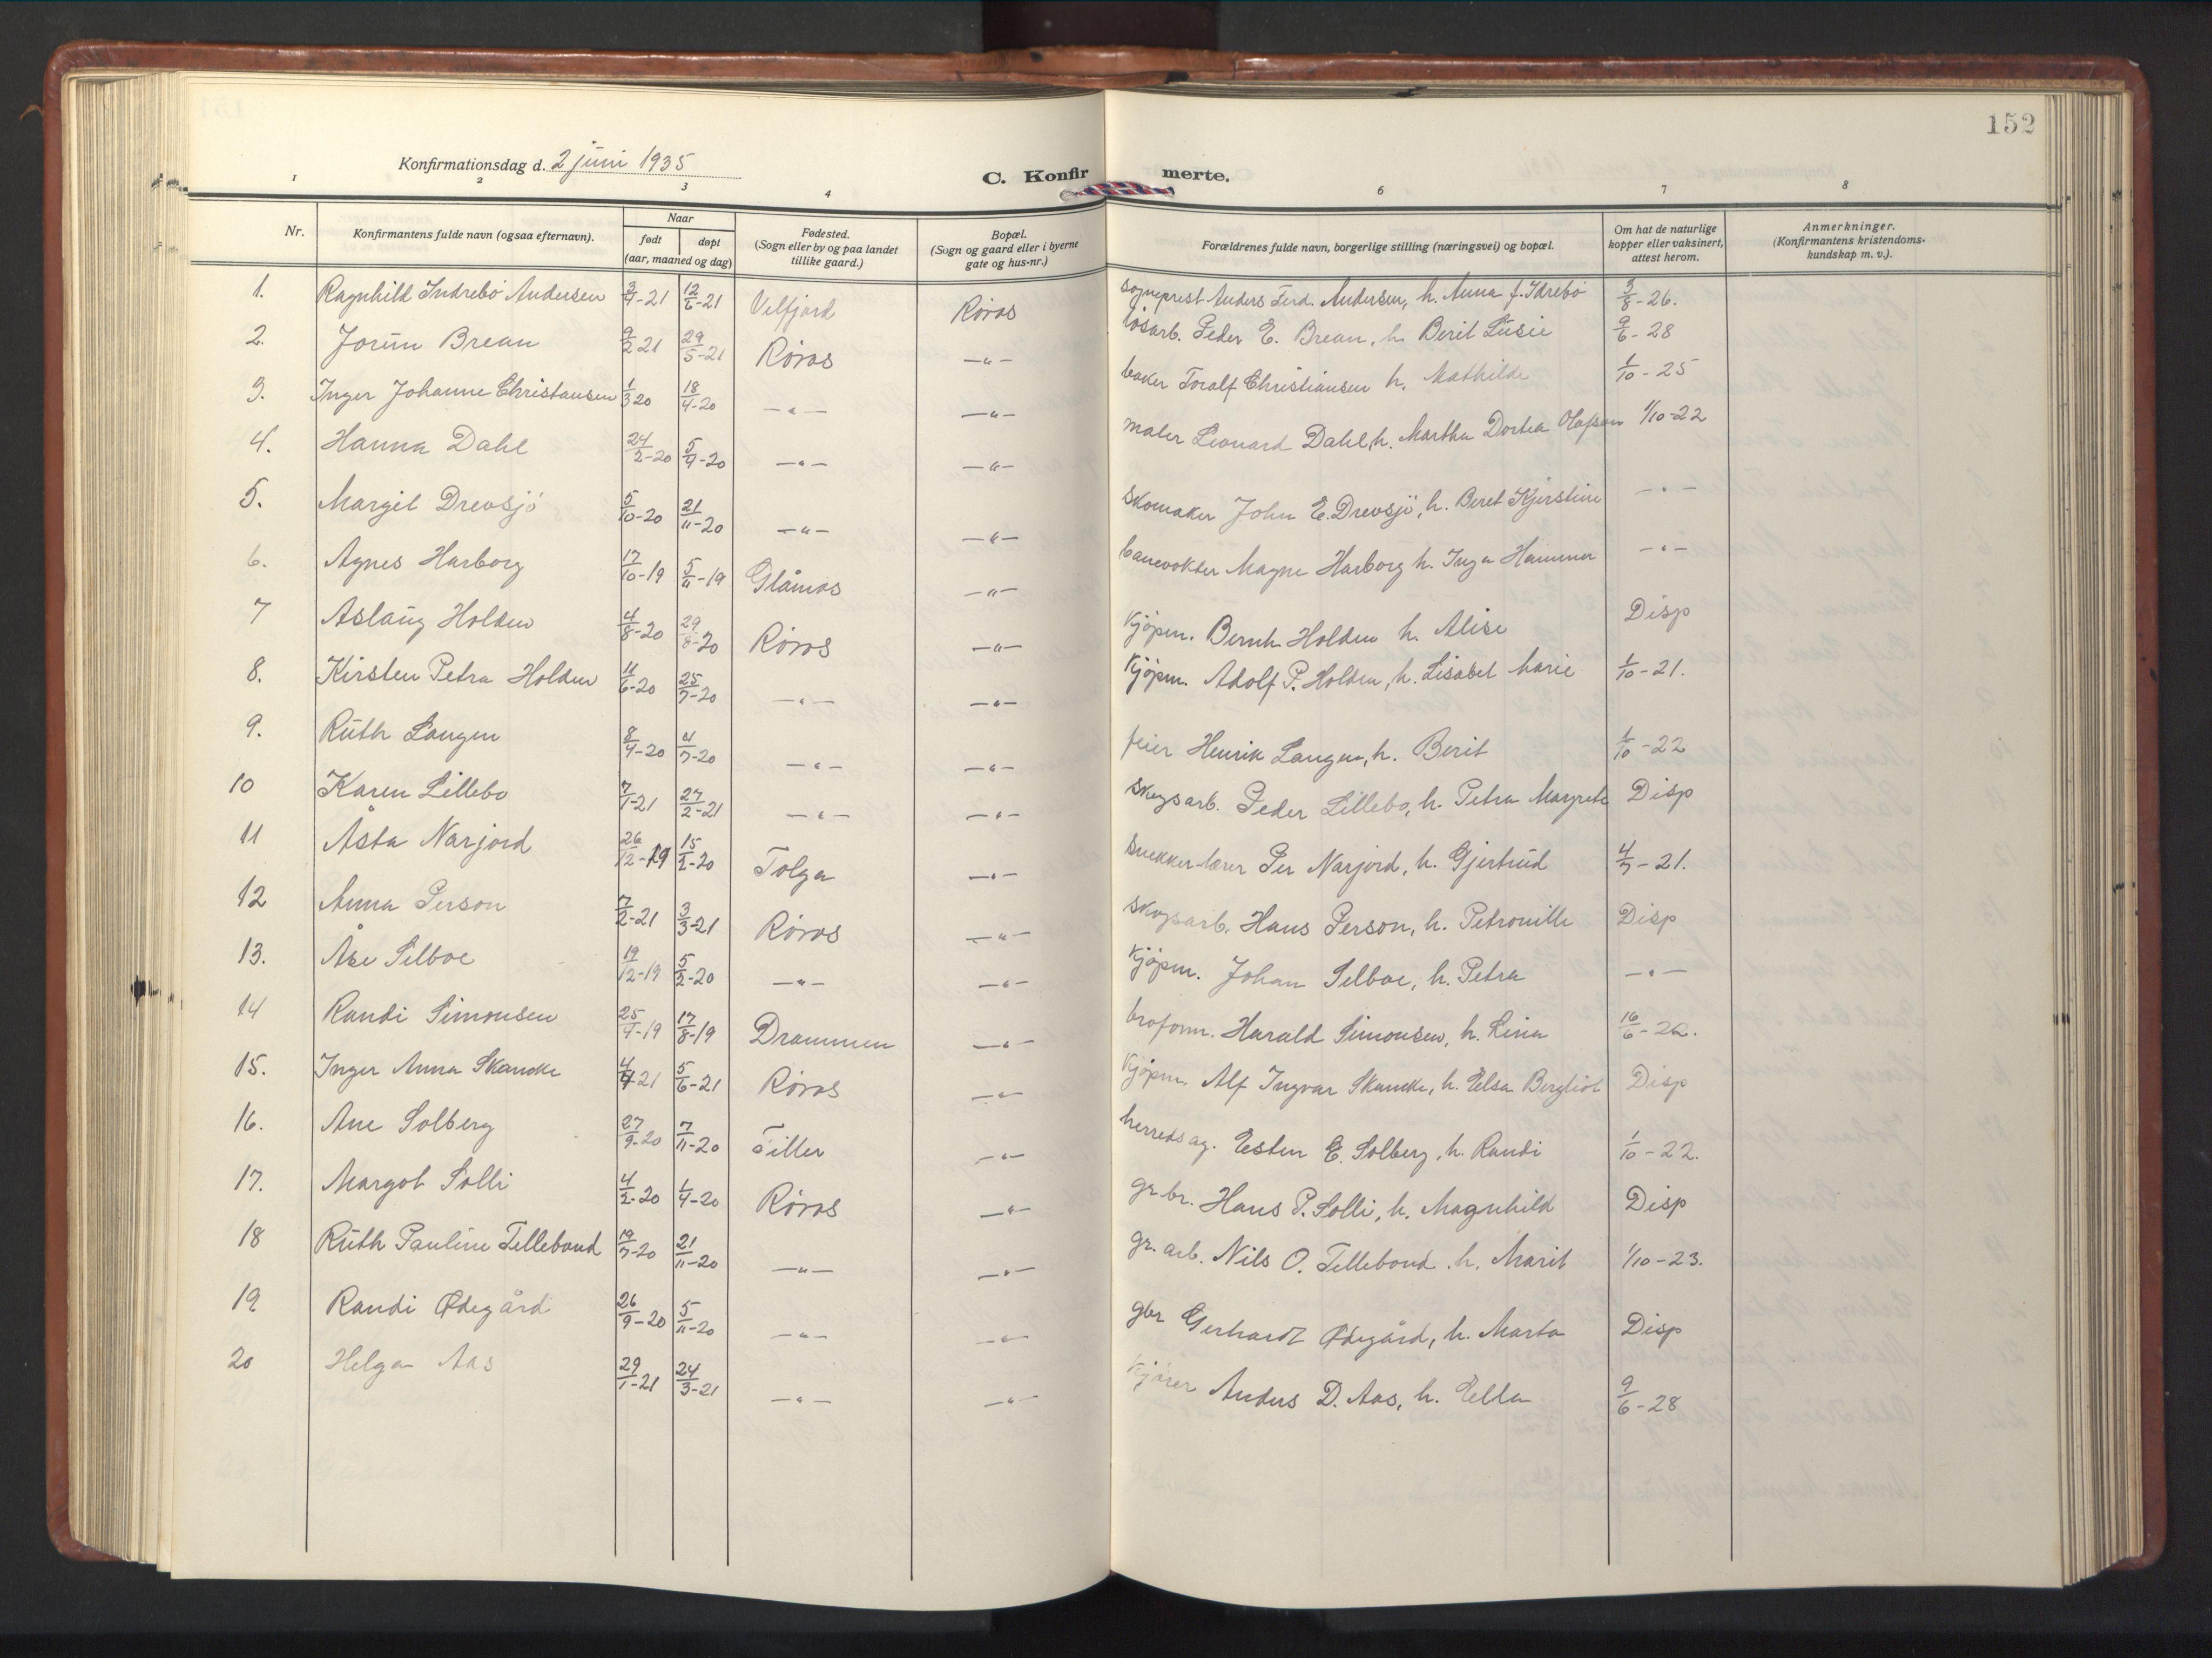 152
Konfirmationsdag d. 2 juni 1935
C. Konfirmerte.
1 2 3 4 6 7 8
Nr. Konfirmantens fulde navn (ogsaa efternavn). Naar født døpt (aar, maaned og dag) Fødested. (Sogn eller by og paa landet tillike gaard.) Bopæl. (Sogn og gaard eller i byerne gate og hus-nr.) Forældrenes fulde navn, borgerlige stilling (næringsvei) og bopæl. Om hat de naturlige kopper eller vaksinert, attest herom. Anmerkninger. (Konfirmantens kristendoms-kundskap m. v.).
1. Ragnhild Indrebö Andersen 3/4-21 12/6-21 Velfjord Røros sogneprest Anders Ferd. Andersen, h. Anna f. Idrebö 3/8-26.
2. Jorun Brean 9/2 21 29/5-21 Røros —"— løsarb. Peder E. Brean, h. Berit Lusie 9/6-28
3. Inger Johanne Christansen 1/3 20 18/4-20 —"— —"— baker Toralf Christiansen h. Mathilde 1/10-25
4. Hanna Dahl 24/2-20 5/9-20 —"— —"— maler Leonard Dahl, h. Martha Dortea Olafson 1/10-22
5. Margit Drevsjö 5/10-20 21/11-20 —"— —"— Skomaker John E. Drevsjö, h. Beret Kjerstine —"—
6. Agnes Harborg 17/10-19 5/11-19 Glåmos —"— banevokter Magne Harborg h. Inga Hammer —"—
7 Aslaug Holden 4/8-20 29/8-20 Røros —"— Kjøpm. Bernh Holden h. Alise Disp
8. Kirsten Petra Holden 11/6-20 25/7-20 —"— —"— Kjøpm. Adolf P. Holden, h. Lisabet Marie 1/10-21.
9. Ruth Langen 8/4-20 4/7-20 —"— —"— feier Henrik Langen, h. Berit 1/10-22
10 Karen Lillebo 7/1-21 27/2-21 —"— —"— Skogsarb. Peder Lillebo, h. Petra Margrete Disp
11 Åsta Narjord 26/12-19 15/2-20 Tolga —"— Snekker lærer Per Narjord, h. Gjertrud 4/7-21.
12 Anna Person 7/2-21 3/3-21 Røros —"— Skogsarb. Hans Person, h. Petronille Disp
13. Åse Selboe 19/12-19 5/2-20 —"— —"— Kjøpm. Johan Selboe, h. Petra —"—
14 Randi Simonsen 25/4-19 17/8-19 Drammen —"— broform. Harald Simonsen, h. Lina 16/6-22.
15. Inger Anna Skancke 4/4 21 5/6-21 Røros —"— Kjøpm. Alf Ingvar Skancke, h. Elsa Bergliot Disp
16. Ane Solberg 27/9-20 7/11-20 Tiller —"— herredsag. Esten E. Solberg, h. Randi 1/10-22.
17. Margot Solli 4/2-20 1/4-20 Røros —"— gr.br. Hans P. Solli, h. Magnhild Disp
18 Ruth Pauline Tellebond 19/7-20 21/11-20 —"— —"— gr. arb. Nils O. Tellebond. h. Marit 1/10-23.
19 Randi Ødegård 26/9-20 5/11-20 —"— —"— gbr Gerhardt Ødegård, h. Marta Disp
20 Helga Aas 29/1-21 24/3-21 —"— —"— Kjører Anders D. Aas, h. Ella 9/6-28